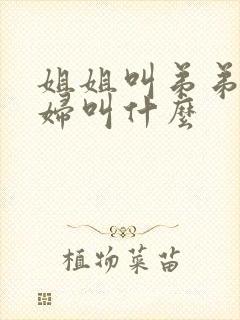 姐姐叫弟弟
婦叫什麼
植物菜苗